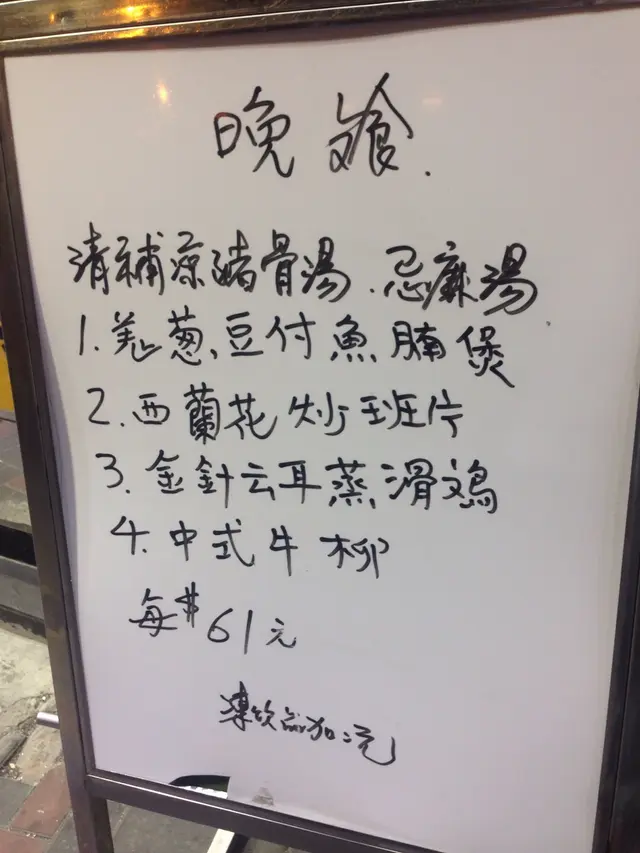 晚餐.
清補涼豬骨湯.忌廉湯
1.姜葱豆付魚腩煲
2.西蘭花炒班片
3.金針云耳蒸滑鸡
4.中式牛柳
每$61元
凍飲品加二元